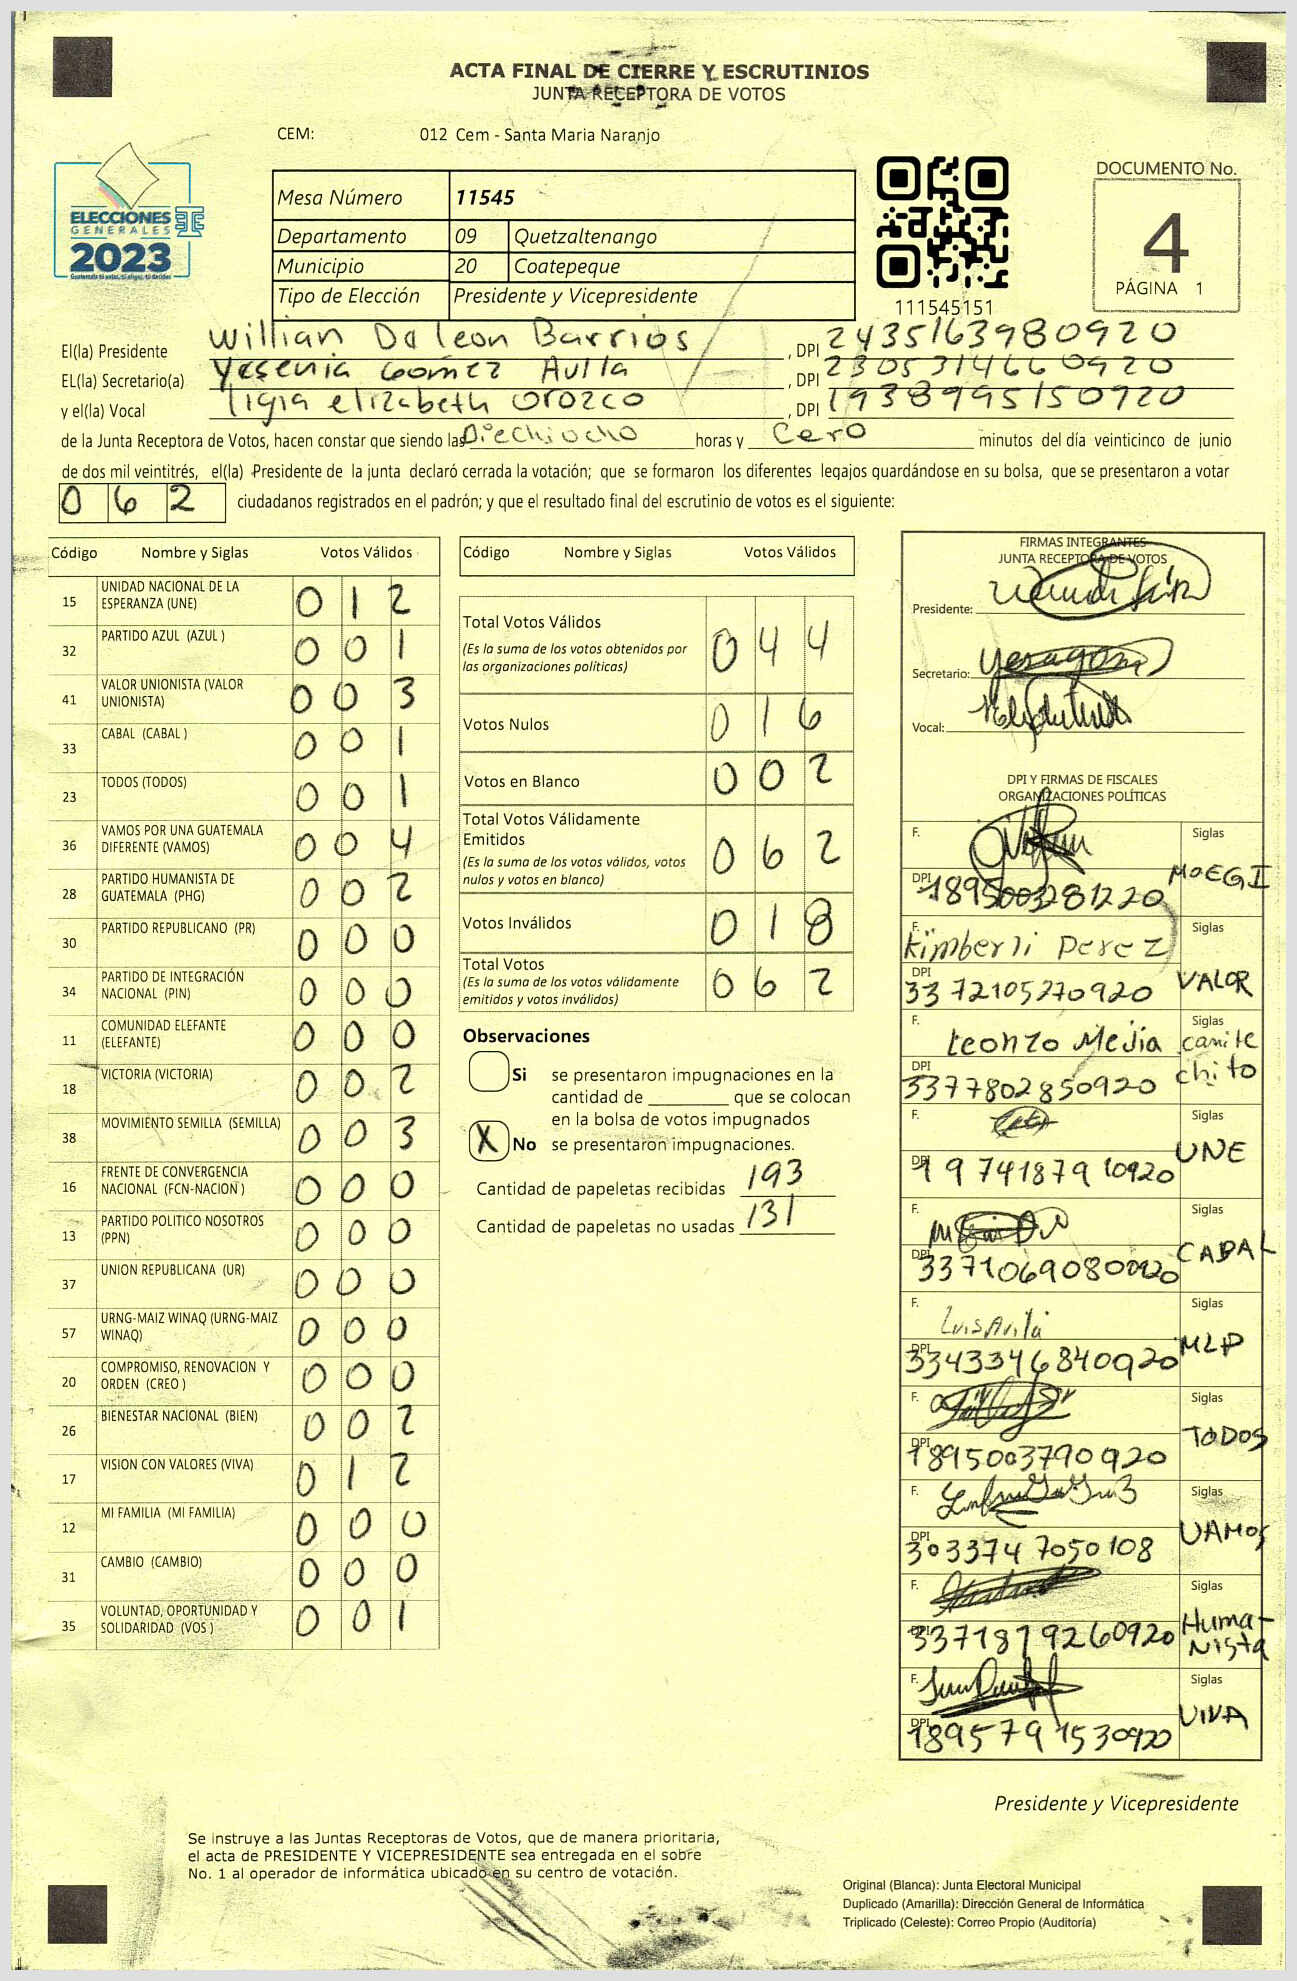 ACTA FINAL DE CIERRE Y ESCRUTINIOS
JUNTA RECEPTORA DE VOTOS
CEM: 012 Cem - Santa Maria Naranjo
ELECCIONES
GENERALES
2023
Mesa Número 11545
Departamento 09 Quetzaltenango
Municipio 20 Coatepeque
Tipo de Elección Presidente y Vicepresidente
111545151
DOCUMENTO No.
4
PÁGINA 1
El(la) Presidente Willian De leon Barrios, DPI 2435163980920
EL(la) Secretario(a) Yesenia Gómez Avila, DPI 2305314660920
y el(la) Vocal ligia elizabeth orozco, DPI 1938995150920
de la Junta Receptora de Votos, hacen constar que siendo las Diechiocho horas y Cero minutos del día veinticinco de junio
de dos mil veintitrés, el(la) Presidente de la junta declaró cerrada la votación; que se formaron los diferentes legajos guardándose en su bolsa, que se presentaron a votar
062 ciudadanos registrados en el padrón; y que el resultado final del escrutinio de votos es el siguiente:
Código Nombre y Siglas Votos Válidos
15 UNIDAD NACIONAL DE LA ESPERANZA (UNE) 012
32 PARTIDO AZUL (AZUL ) 001
41 VALOR UNIONISTA (VALOR UNIONISTA) 003
33 CABAL (CABAL ) 001
23 TODOS (TODOS) 001
36 VAMOS POR UNA GUATEMALA DIFERENTE (VAMOS) 004
28 PARTIDO HUMANISTA DE GUATEMALA (PHG) 002
30 PARTIDO REPUBLICANO (PR) 000
34 PARTIDO DE INTEGRACIÓN NACIONAL (PIN) 000
11 COMUNIDAD ELEFANTE (ELEFANTE) 000
18 VICTORIA (VICTORIA) 002
38 MOVIMIENTO SEMILLA (SEMILLA) 003
16 FRENTE DE CONVERGENCIA NACIONAL (FCN-NACION ) 000
13 PARTIDO POLITICO NOSOTROS (PPN) 000
37 UNION REPUBLICANA (UR) 000
57 URNG-MAIZ WINAQ (URNG-MAIZ WINAQ) 000
20 COMPROMISO, RENOVACION Y ORDEN (CREO ) 000
26 BIENESTAR NACIONAL (BIEN) 002
17 VISION CON VALORES (VIVA) 012
12 MI FAMILIA (MI FAMILIA) 000
31 CAMBIO (CAMBIO) 000
35 VOLUNTAD, OPORTUNIDAD Y SOLIDARIDAD (VOS ) 001
Código Nombre y Siglas Votos Válidos
Total Votos Válidos 044
(Es la suma de los votos obtenidos por
las organizaciones políticas)
Votos Nulos 016
Votos en Blanco 002
Total Votos Válidamente
Emitidos 062
(Es la suma de los votos válidos, votos
nulos y votos en blanco)
Votos Inválidos 018
Total Votos 062
(Es la suma de los votos válidamente
emitidos y votos inválidos)
Observaciones
Si se presentaron impugnaciones en la
cantidad de ________ que se colocan
en la bolsa de votos impugnados
X No se presentaron impugnaciones.
Cantidad de papeletas recibidas 193
Cantidad de papeletas no usadas 131
FIRMAS INTEGRANTES
JUNTA RECEPTORA DE VOTOS
Presidente:
Secretario:
Vocal:
DPI Y FIRMAS DE FISCALES
ORGANIZACIONES POLÍTICAS
F. Siglas
DPI 1895003281220 MOEGI
F. Kimberli Perez Siglas
DPI 3372105270920 VALOR
F. Leonzo Mejia Siglas canite
DPI 3377802850920 chito
F. Siglas
DPI 1974187910920 UNE
F. Siglas
DPI 3371069080920 CABAL
F. Luis Avila Siglas
DPI 3343346840920 MLP
F. Siglas
DPI 1895003790920 TODOS
F. Siglas
DPI 3033747050108 VAMOS
F. Siglas
DPI 3371819260920 Huma-
nista
F. Siglas
DPI 1895791530920 VIVA
Presidente y Vicepresidente
Se instruye a las Juntas Receptoras de Votos, que de manera prioritaria,
el acta de PRESIDENTE Y VICEPRESIDENTE sea entregada en el sobre
No. 1 al operador de informática ubicado en su centro de votación.
Original (Blanca): Junta Electoral Municipal
Duplicado (Amarilla): Dirección General de Informática
Triplicado (Celeste): Correo Propio (Auditoría)